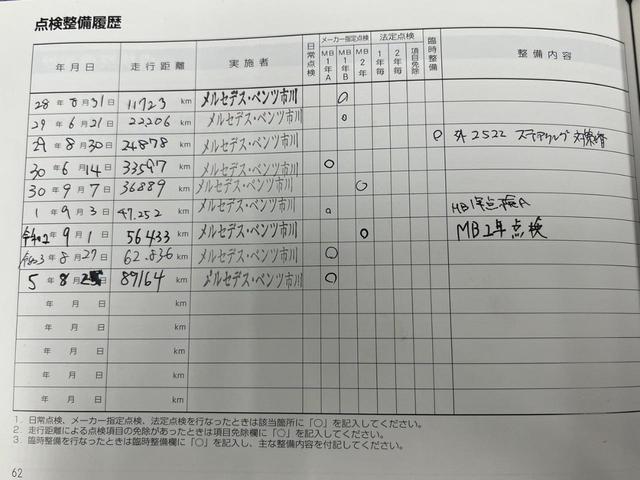 点検整備履歴
年月日 走行距離 実施者 日常点検 メーカー指定点検 MB1年A MB1年B MB2年 法定点検 1年毎 2年毎 項目免除 臨時整備 整備内容
28年8月31日 11723 km メルセデス・ベンツ市川 ○
29年6月21日 22206 km メルセデス・ベンツ市川 ○
29年8月30日 24878 km メルセデス・ベンツ市川 ○ 2522 ステアリング
30年6月14日 33597 km メルセデス・ベンツ市川 ○
30年9月7日 36889 km メルセデス・ベンツ市川 ○
1年9月3日 47.252 km メルセデス・ベンツ市川 ○ MB1年点検A
令和2年9月1日 56433 km メルセデス・ベンツ市川 ○ MB2年点検
令和3年8月27日 62.836 km メルセデス・ベンツ市川 ○
5年8月日 89164 km メルセデス・ベンツ市川 ○
年月日 km
年月日 km
年月日 km
年月日 km
年月日 km
1. 日常点検、メーカー指定点検、法定点検を行なったときは該当箇所に「○」を記入してください。
2. 走行距離による点検項目の免除があったときは項目免除欄に「○」を記入してください。
3. 臨時整備を行なったときは臨時整備欄に「○」を記入し、主な整備内容を付記してください。
62